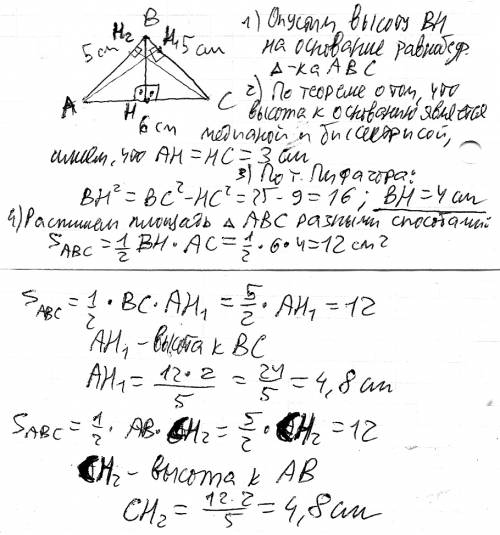 B
H₂
H₁
5 см
5 см
A
H
C
6 см
1) Опустим высоту BH
на основание равнобедр.
Δ-ка ABC
2) По теореме о том, что
высота к основанию является
медианой и биссектрисой,
имеем, что AH = HC = 3 см
3) По т. Пифагора:
BH² = BC² - HC² = 25 - 9 = 16 ; BH = 4 см
4) Распишем площадь Δ ABC разными способами
S_ABC = 1/2 BH · AC = 1/2 · 6 · 4 = 12 см²
S_ABC = 1/2 · BC · AH₁ = 5/2 · AH₁ = 12
AH₁ - высота к BC
AH₁ = 12·2/5 = 24/5 = 4,8 см
S_ABC = 1/2 · AB · CH₂ = 5/2 · CH₂ = 12
CH₂ - высота к AB
CH₂ = 12·2/5 = 4,8 см